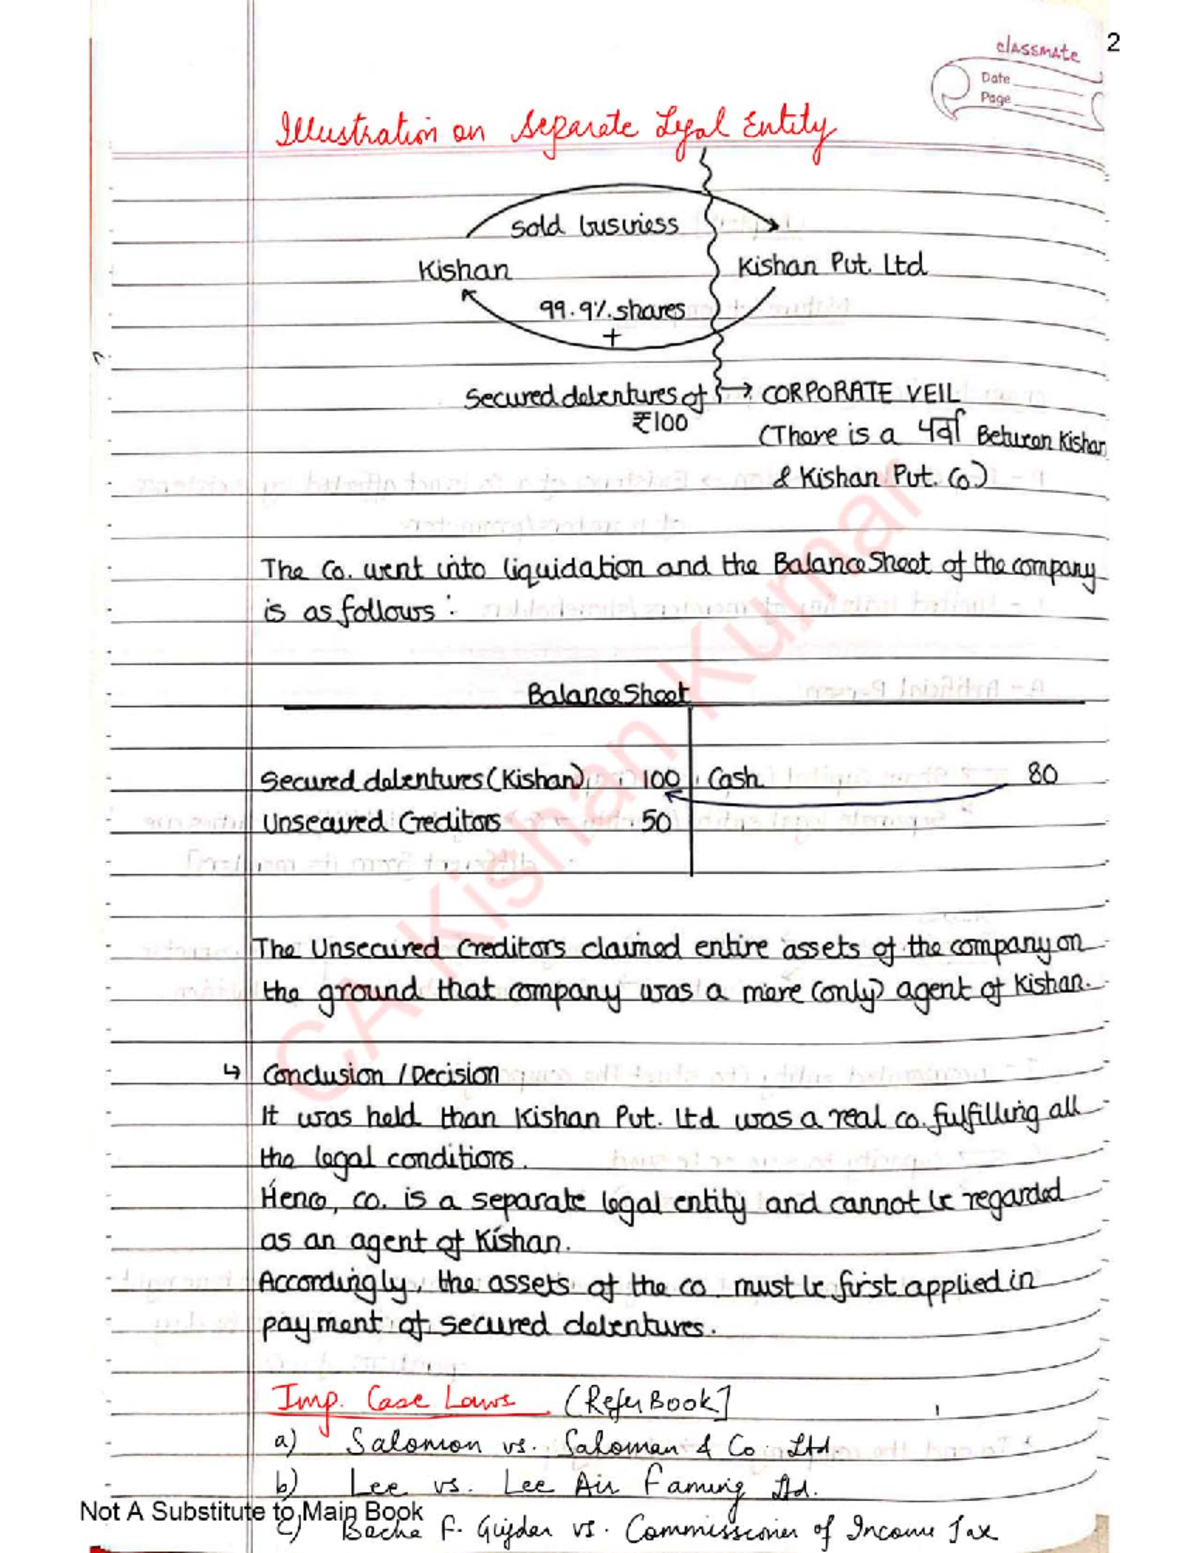 2
classmate
Date
Page
Illustration on Separate Legal Entity
sold business
Kishan Kishan Pvt. Ltd
99.9% shares
+
Secured debentures of → CORPORATE VEIL
₹100
(There is a पर्दा Between Kishan
& Kishan Pvt. Co)
The Co. went into liquidation and the Balance Sheet of the company
is as follows :
Balance Sheet
Secured debentures (Kishan) 100 Cash 80
Unsecured Creditors 50
The Unsecured Creditors claimed entire assets of the company on
the ground that company was a mere (only) agent of Kishan.
↳ Conclusion / Decision
It was held than Kishan Pvt. Ltd was a real co. fulfilling all
the legal conditions.
Hence, co. is a separate legal entity and cannot be regarded
as an agent of Kishan.
Accordingly, the assets of the co must be first applied in
payment of secured debentures.
Imp. Case Laws (Refer Book]
a) Salomon vs. Saloman & Co. Ltd.
b) Lee vs. Lee Air Faming Ltd.
Not A Substitute to Main Book
c) Bacha F. Gujdar vs. Commissioner of Income Tax
CA Kishan Kumar